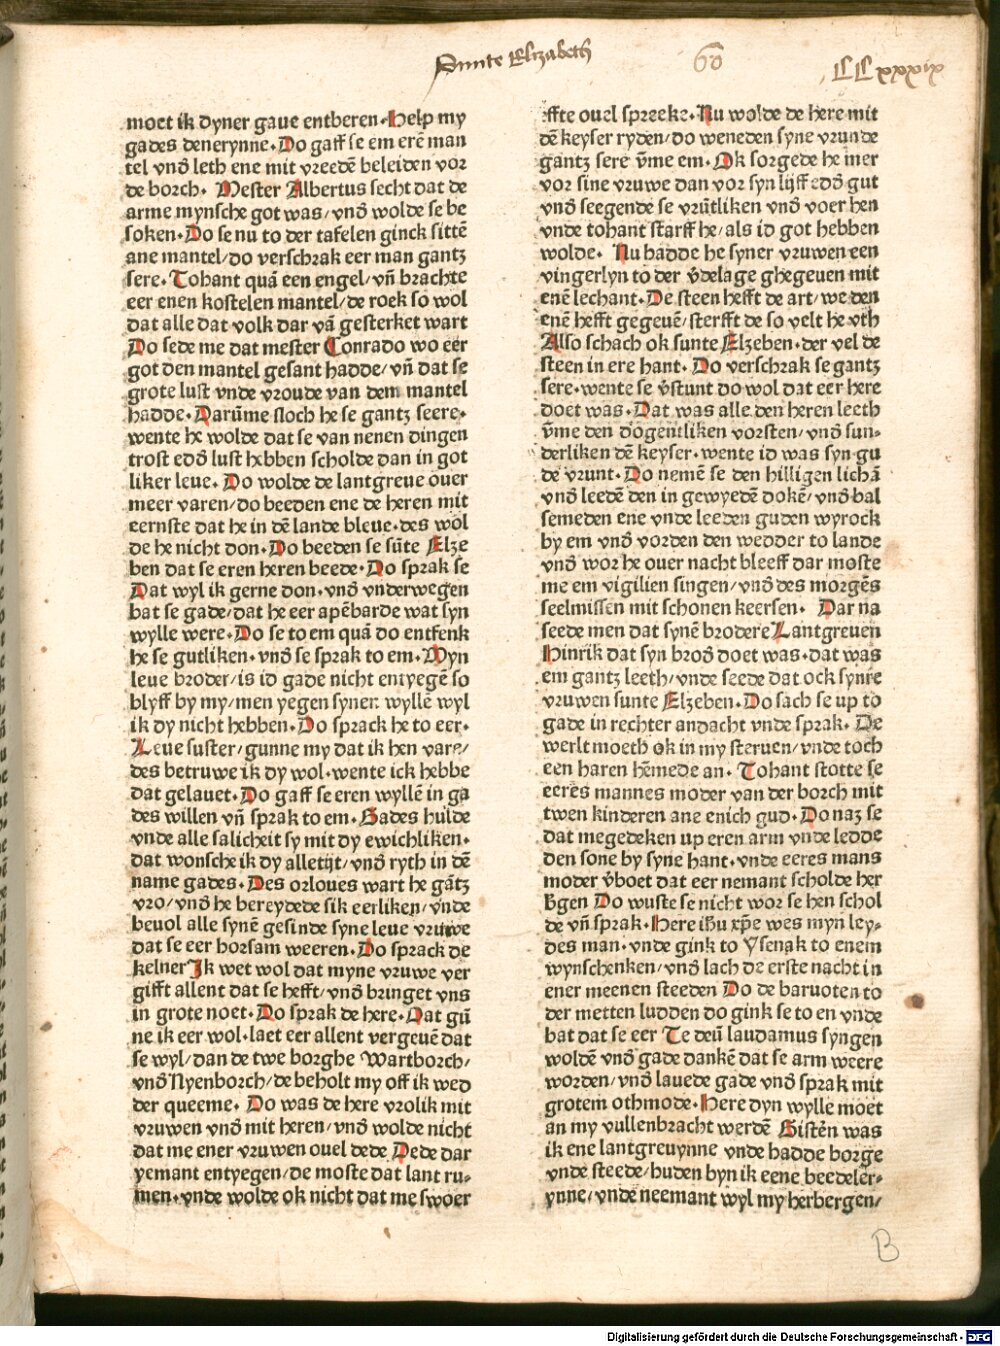 Sunte Elizabeth
60
CCxxxix
moet ik dyner gaue entberen. Help my
gades denerynne. Do gaff se em erē man
tel vnd leth ene mit vreedē beleiden vor
de borch. Mester Albertus secht dat de
arme mynsche got was/ vnd wolde se be
soken. Do se nu to der tafelen ginck sittē
ane mantel/ do verschrak eer man gantz
sere. Tohant quā een engel/ vn̄ brachte
eer enen kostelen mantel/ de roek so wol
dat alle dat volk dar vā gesterket wart
Do sede me dat mester Conrado wo eer
got den mantel gesant hadde/ vn̄ dat se
grote lust vnde vroude van dem mantel
hadde. Darūme sloch he se gantz seere.
wente he wolde dat se van nenen dingen
trost edd lust hebben scholde dan in got
liker leue. Do wolde de lantgreue ouer
meer varen/ do beeden ene de heren mit
eernste dat he in dē lande bleue. des wol
de he nicht don. Do beeden se sūte Elze
ben dat se eren heren beede. Do sprak se
Dat wyl ik gerne don. vnd vnderwegen
bat se gade/ dat he eer apēbarde wat syn
wylle were. Do se to em quā do entfenk
he se gutliken. vnd se sprak to em. Myn
leue broder/ is id gade nicht entyegē so
blyff by my/ men yegen synen wyllē wyl
ik dy nicht hebben. Do sprack he to eer.
Leue suster/ gunne my dat ik hen vare/
des betruwe ik dy wol. wente ick hebbe
dat gelauet. Do gaff se eren wyllē in ga
des willen vn̄ sprak to em. Gades hulde
vnde alle salicheit sy mit dy ewichliken.
dat wonsche ik dy alletijt/ vnd ryth in dē
name gades. Des orloues wart he gātz
vro/ vnd he bereydede sik eerliken/ vnde
beuol alle synē gesinde syne leue vruwe
dat se eer horsam weeren. Do sprack de
kelner Ik wet wol dat myne vruwe ver
gifft allent dat se hefft/ vnd bringet vns
in grote noet. Do sprak de here. Dat gū
ne ik eer wol. laet eer allent vergeuē dat
se wyl/ dan de twe borghe Wartborch/
vnd Nyenborch/ de beholt my off ik wed
der queeme. Do was de here vrolik mit
vruwen vnd mit heren/ vnd wolde nicht
dat me ener vruwen ouel dede Dede dar
yemant entyegen/ de moste dat lant ru-
men. vnde wolde ok nicht dat me swoer
effte ouel spreeke. Nu wolde de here mit
dē keyser ryden/ do weneden syne vrunde
gantz sere v̄me em. Ok sorgede he mer
vor sine vruwe dan vor syn lijff edd gut
vnd seegende se vrūtliken vnd voer hen
vnde tohant starff he/ als id got hebben
wolde. Nu hadde he syner vruwen een
vingerlyn to der v̄delage ghegeuen mit
enē lechant. De steen hefft de art/ we den
enē hefft gegeuē/ sterfft de so velt he vth
Also schach ok sunte Elzeben. der vel de
steen in ere hant. Do verschrak se gantz
sere. wente se v̄stunt do wol dat eer here
doet was. Dat was alle den heren leeth
v̄me den dogentliken vorsten/ vnd sun-
derliken dē keyser. wente id was syn gu
de vrunt. Do nemē se den hilligen lichā
vnd leedē den in gewyedē dokē/ vnd bal
semeden ene vnde leeden guden wyrock
by em vnd vorden den wedder to lande
vnd wor he ouer nacht bleeff dar moste
me em vigilien singen/ vnd des morgēs
seelmissen mit schonen keersen. Dar na
seede men dat synē brodere Lantgreuen
Hinrik dat syn brod doet was. dat was
em gantz leeth/ vnde seede dat ock synre
vruwen sunte Elzeben. Do sach se up to
gade in rechter andacht vnde sprak. De
werlt moeth ok in my steruen/ vnde toch
een haren hēmede an. Tohant stotte se
eeres mannes moder van der borch mit
twen kinderen ane enich gud. Do naz se
dat megedeken up eren arm vnde ledde
den sone by syne hant. vnde eeres mans
moder v̄boet dat eer nemant scholde her
bgen Do wuste se nicht wor se hen schol
de vn̄ sprak. Here ihu xp̄e wes myn ley-
des man. vnde gink to Ysenak to enem
wynschenken/ vnd lach de erste nacht in
ener meenen steeden Do de baruoten to
der metten ludden do gink se to en vnde
bat dat se eer Te deū laudamus syngen
woldē vnd gade dankē dat se arm weere
worden/ vnd lauede gade vnd sprak mit
grotem othmode. Here dyn wylle moet
an my vullenbracht werdē Gistēn was
ik ene lantgreuynne vnde hadde borge
vnde steede/ huden byn ik eene beedeler-
ynne/ vnde neemant wyl my herbergen/
B
Digitalisierung gefördert durch die Deutsche Forschungsgemeinschaft - DFG